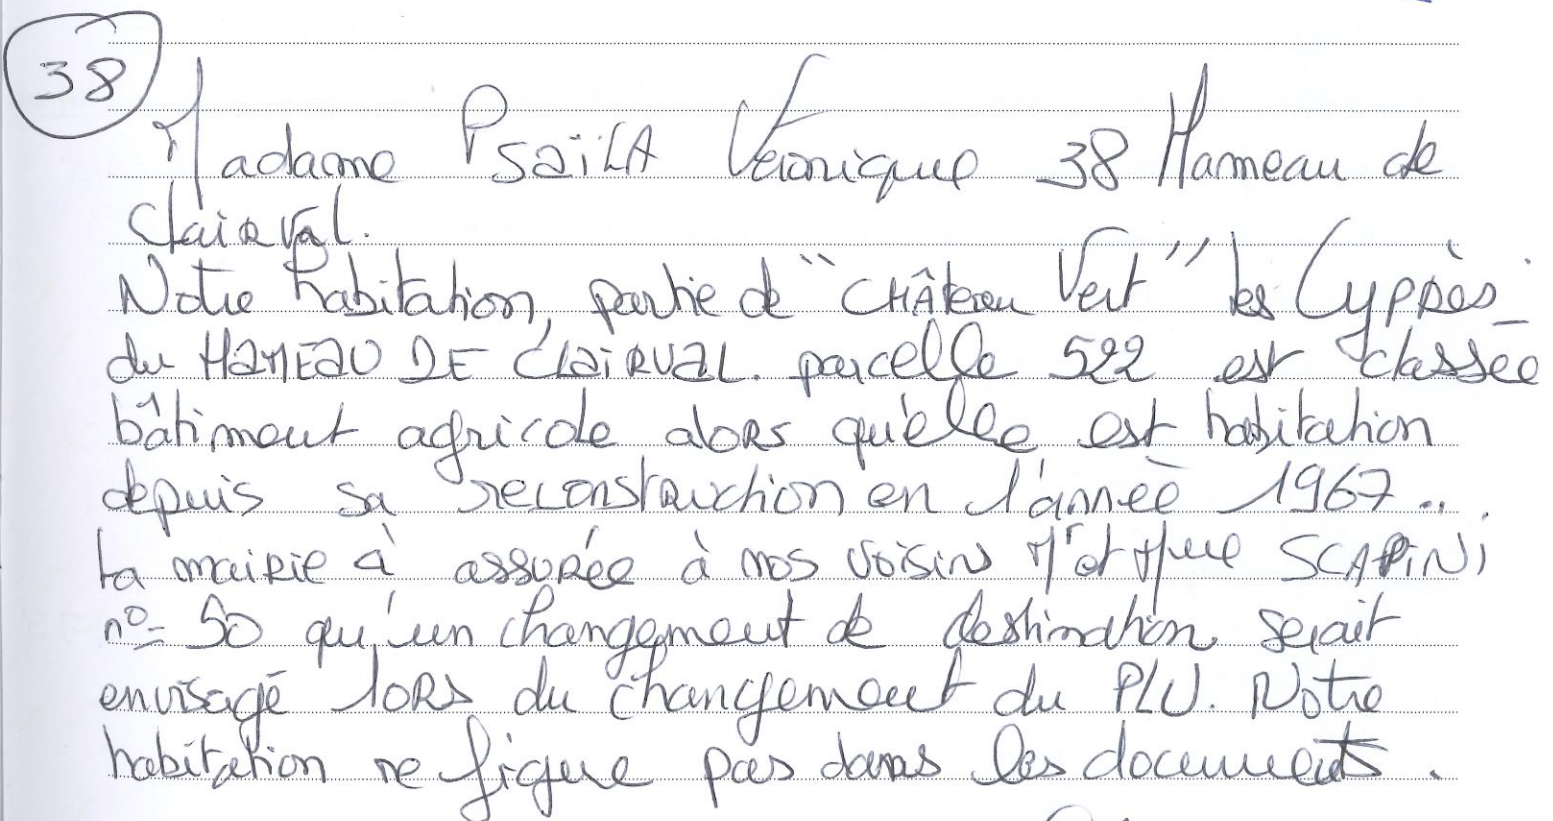 38
Madame PSaïLA Véronique 38 Hameau de
Clairval.
Notre habitation, partie de "CHÂteau Vert" les Cyprès
du HAMEAU DE CLAIRVAL. parcelle 522 est classée
bâtiment agricole alors qu'elle est habitation
depuis sa reconstruction en l'année 1967...
La mairie à assurée à nos voisins Mr et Mme SCAPINI
n°= 50 qu'un changement de destination serait
envisagé lors du changement du PLU. Notre
habitation ne figure pas dans les documents.